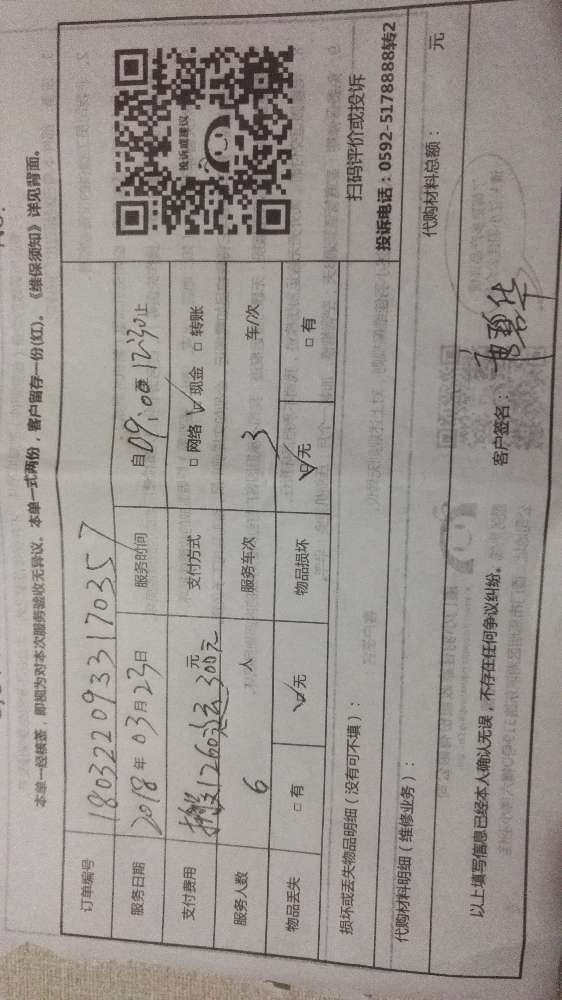 本单一经核签，即视为对本次服务验收无异议。本单一式两份，客户留存一份(红)。《维保须知》详见背面。
订单编号 180322093317035 7
服务日期 2018 年 03 月 23 日 服务时间 自 09:00 至 12:30 止
支付费用 1260 300元 元 支付方式 □ 网络 ☑ 现金 □ 转账
服务人数 6 人 服务车次 3 车/次
物品丢失 □ 有 ☑ 无 物品损坏 ☑ 无 □ 有
投诉或建议
扫码评价或投诉
投诉电话：0592-5178888转2
损坏或丢失物品明细（没有可不填）：
代购材料明细（维修业务）： 代购材料总额： 元
以上填写信息已经本人确认无误，不存在任何争议纠纷。 客户签名：